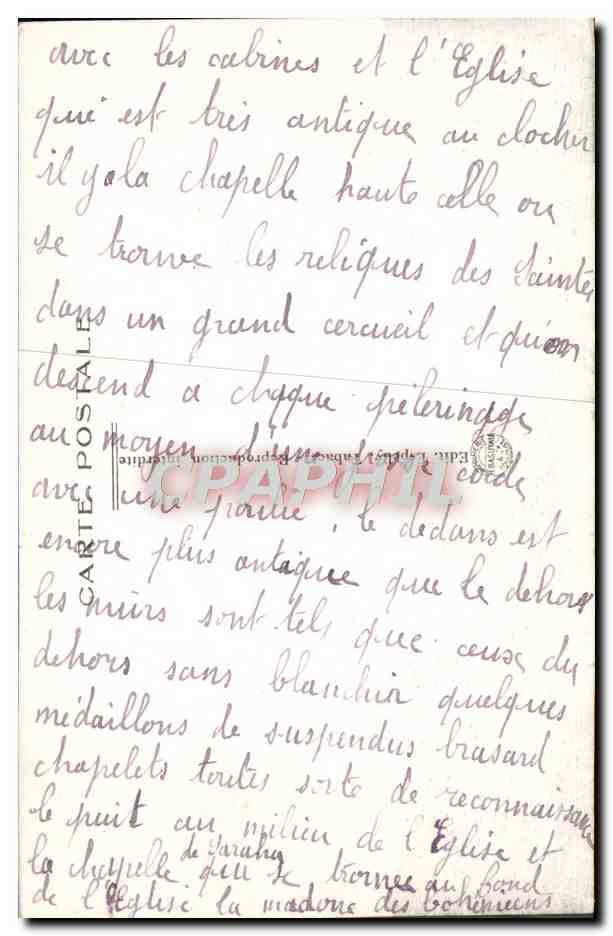 avec les cabines et l'Eglise
qui est très antique au clocher
il y a la chapelle haute celle ou
se trouve les reliques des Saintes
dans un grand cercueil et qu'on
descend a chaque pèlerinage
au moyen d'une corde
avec une poulie, le dedans est
encore plus antique que le dehors
les murs sont tels que ceux du
dehors sans blanchir quelques
médaillons de suspendus brasard
chapelets toutes sorte de reconnaissance
le puit au milieu de l'Eglise et
la chapelle de Saraha qui se trouve au fond
de l'Eglise la madone des bohemiens
CARTE POSTALE
Edit. Espelly, Tabacs - Reproduction interdite
CPARPHIL